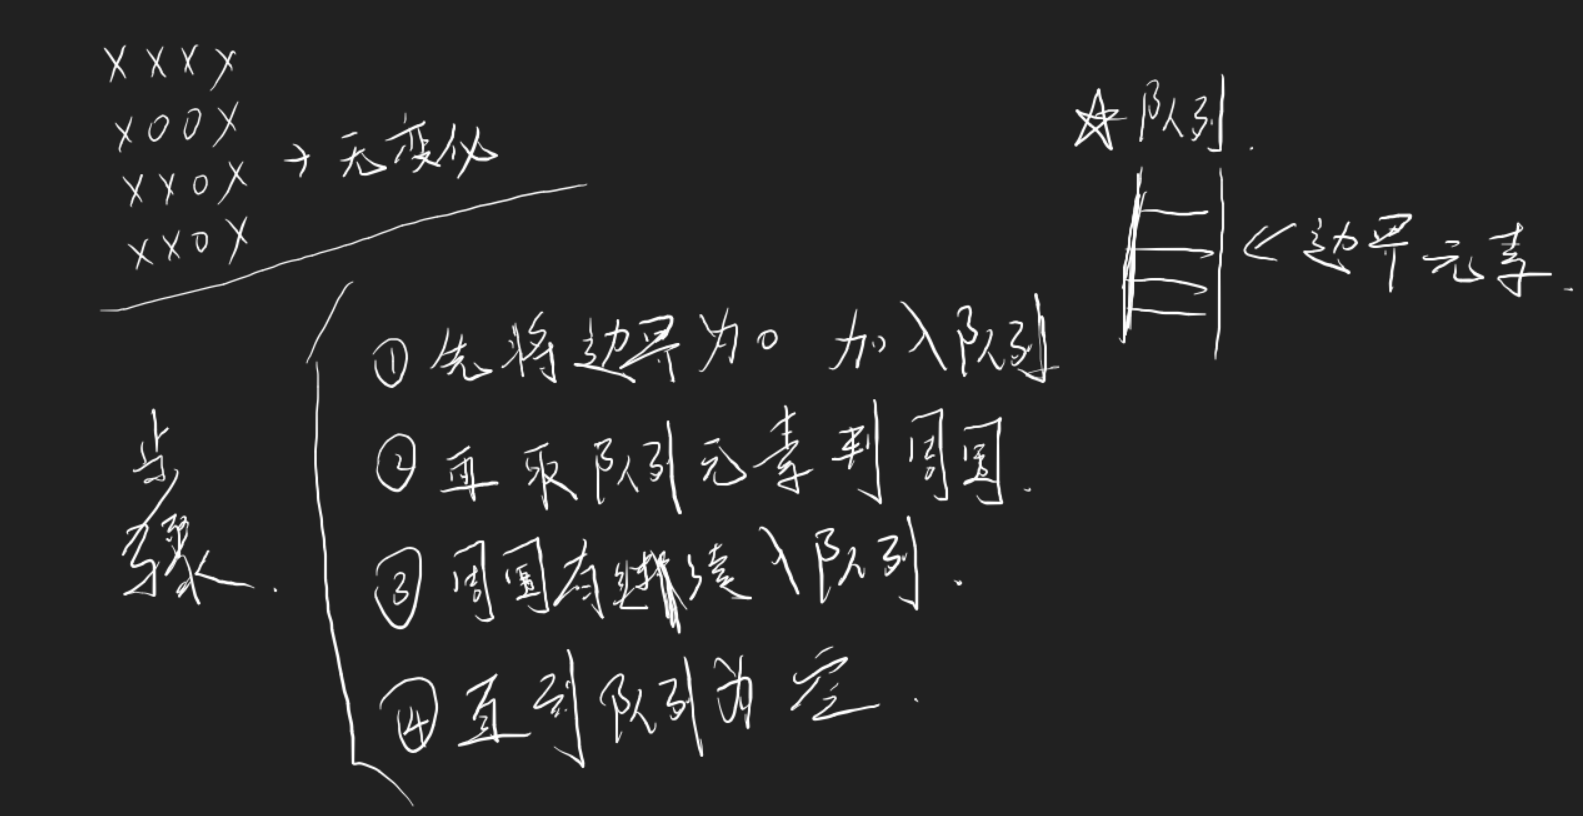 X X X X
X O O X
X X O X
X X O X
→ 无变化
☆ 队列.
<= 边界元素.
步骤.
① 先将边界为O 加入队列
② 再取队列元素判周围.
③ 周围有继续入队列.
④ 直到队列为空.